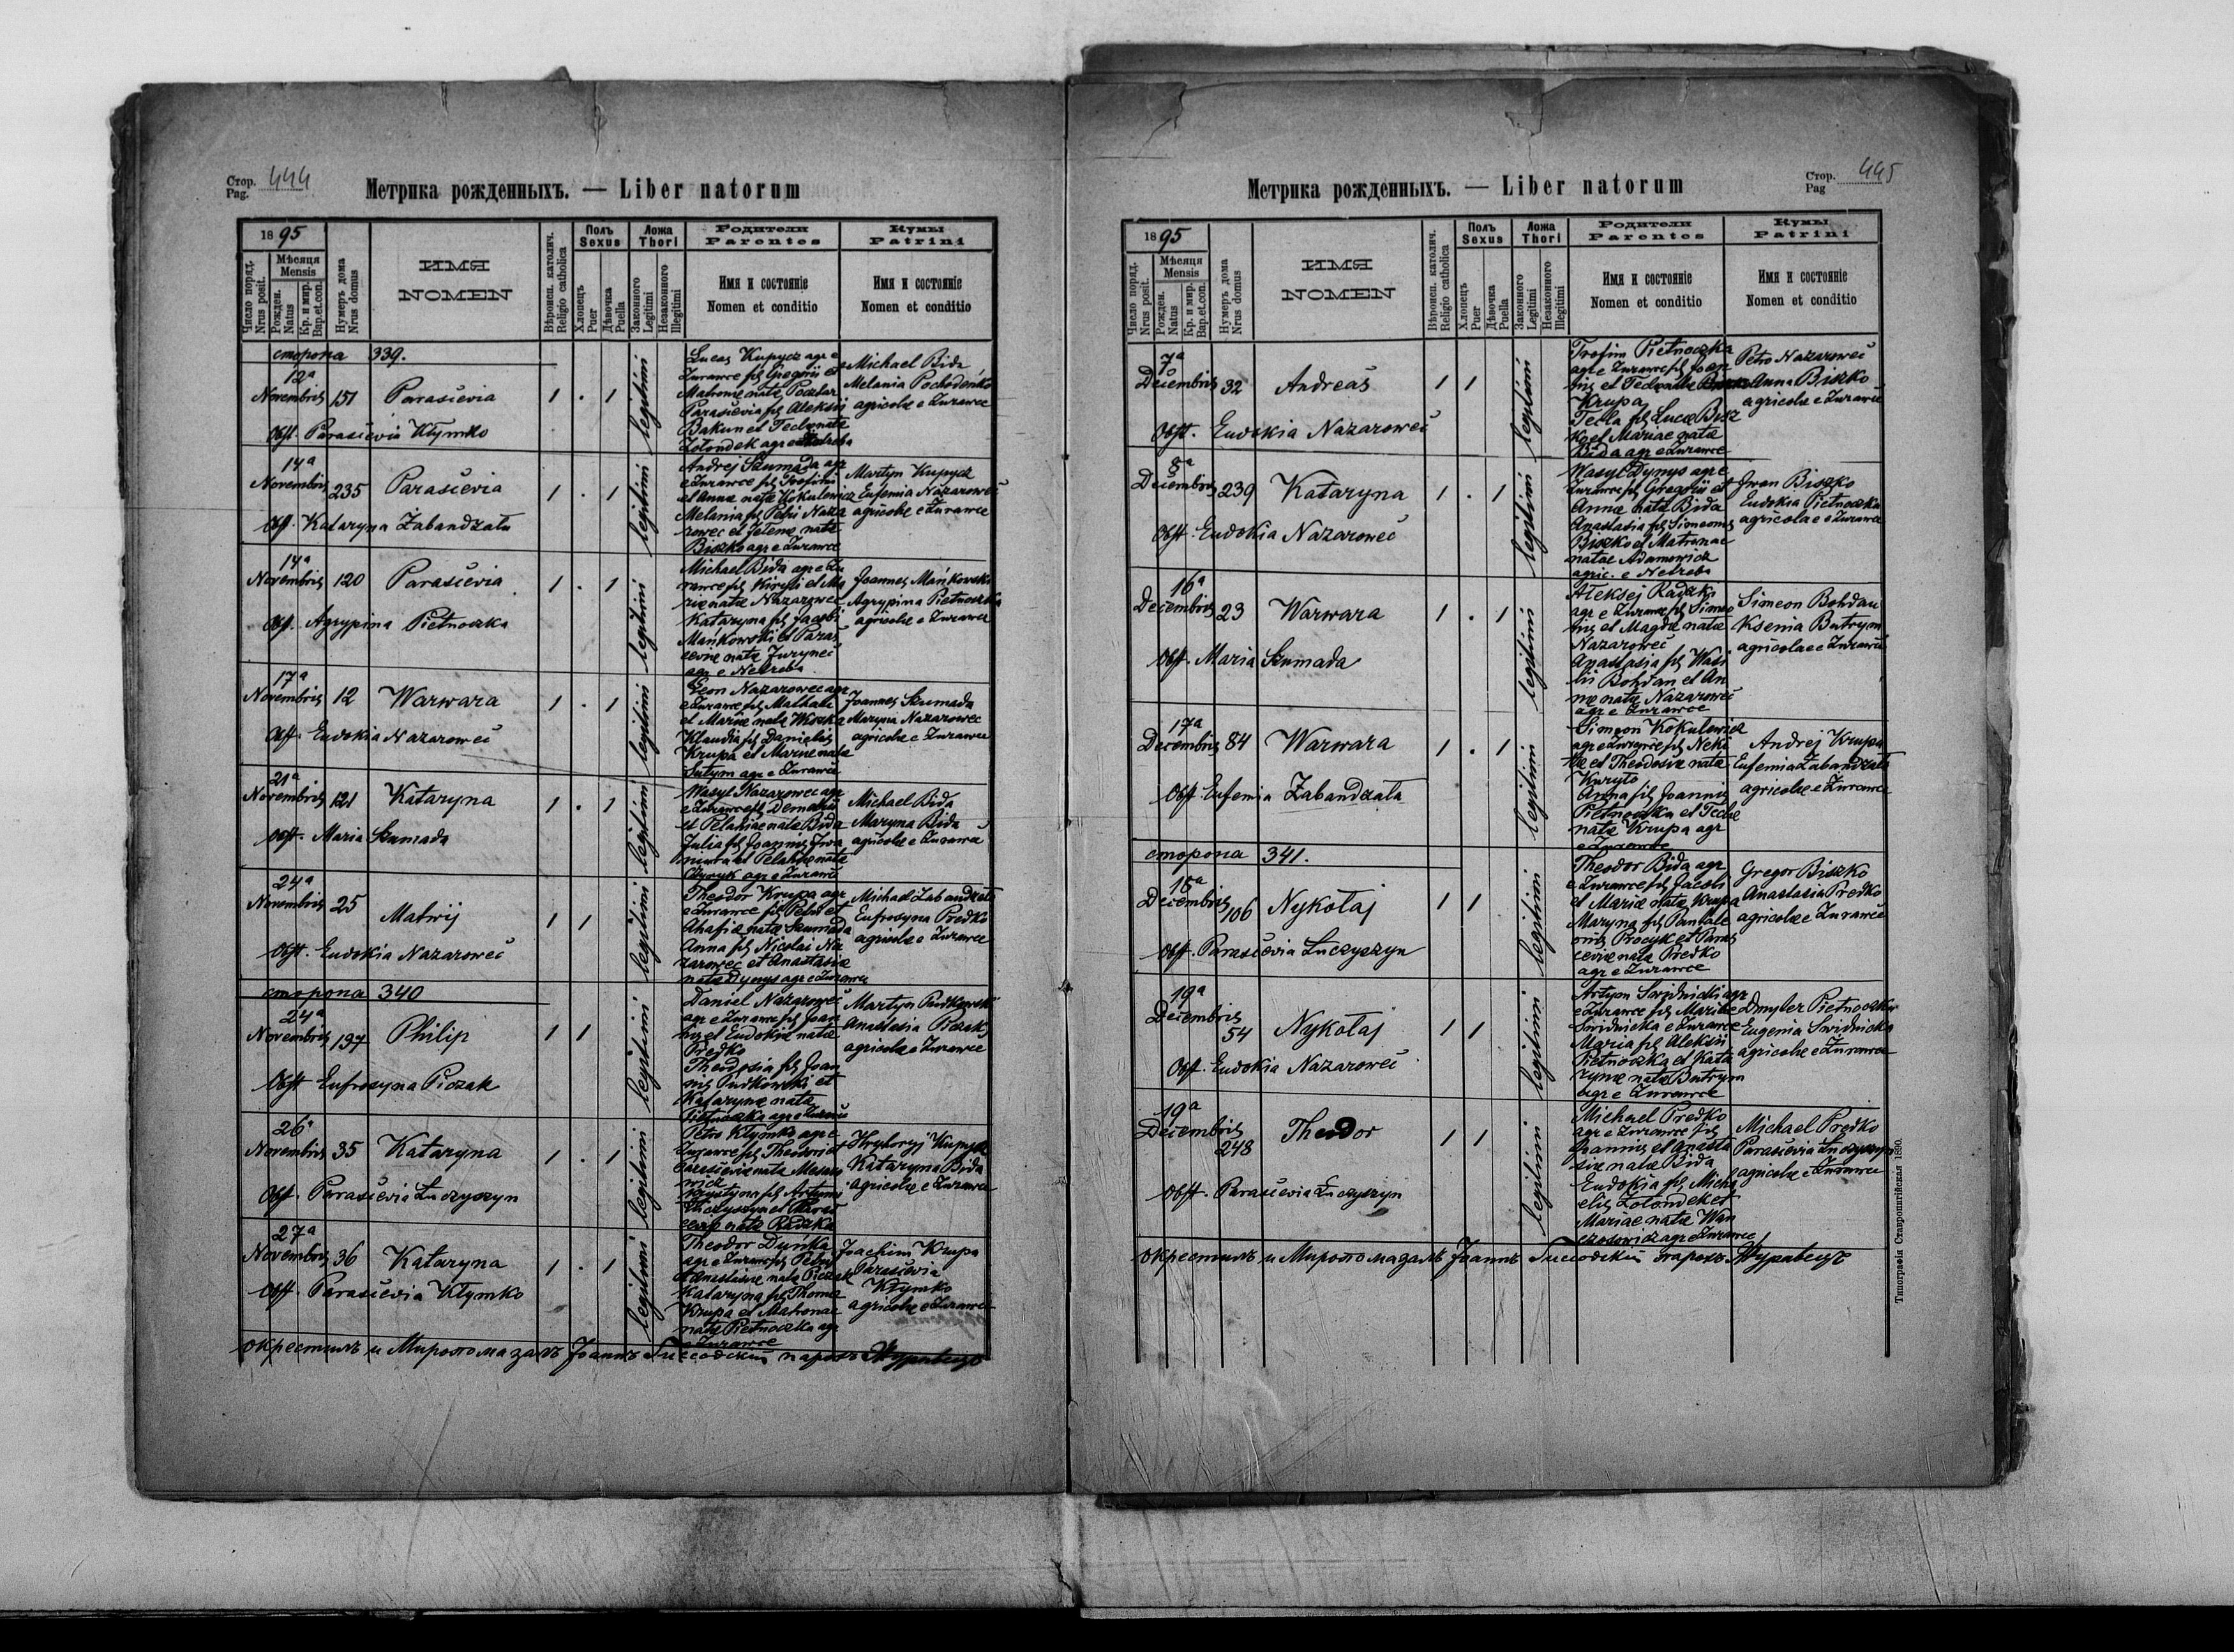 Стор. 444
Pag.
Метрика рожденныхъ. — Liber natorum
1895
Мѣсяця
Mensis
Число поряд.
Nrus posit.
Рожден.
Natus
Кр. и мир.
Bap.et.con.
Нумеръ дома
Nrus domus
ИМЯ
NOMEN
Вѣроисп. католич.
Religio catholica
Полъ
Sexus
Хлопецъ
Puer
Дѣвочка
Puella
Ложа
Thori
Законного
Legitimi
Незаконного
Illegitimi
Родители
Parentes
Имя и состояніе
Nomen et conditio
Кумы
Patrini
Имя и состояніе
Nomen et conditio
сторона 339.
12ª
Novembris 151 Parascevia 1 . 1 legitimi
Obst. Parascevia Kłymko
Lucas Kupycz agr e
Żurawce fil Gregorii et
Matronae natae
Parascevia fil Aleksii
Bakun et Teclae natae
Żołondek agr e Netreba
Michael Bida
Melania
agricolae e Żurawce
14ª
Novembris 235 Parascevia 1 . 1 legitimi
Obst. Kataryna Zabandżała
Andrej Szumada agr
e Żurawce fil
et Annae natae Kokulewicz
Melania fil Petri Naza
rowec et natae
Biszko agr e Żurawce
Martyn Kupycz
Eufemia Nazarowec
agricolae e Żurawce
14ª
Novembris 120 Parascevia 1 . 1 legitimi
Obst. Agrypina Pietnoczka
Michael Bida agr e Żu
rawce fil Kiryli et Ma
riae natae Nazarowec
Kataryna fil Jacobi
Mańkowski et Paras
ceviae natae Juryneć
agr e Netreba
Joannes Mańkowski
Agrypina Pietnoczka
agricolae e Żurawce
17ª
Novembris 12 Warwara 1 . 1 legitimi
Obst. Eudokia Nazarowec
Leon Nazarowec agr
e Żurawce fil
et Mariae natae
Klaudia fil Danielis
Krupa et Mariae natae
agr e Żurawce
Joannes Szumada
Maryna Nazarowec
agricolae e Żurawce
21ª
Novembris 121 Kataryna 1 . 1 legitimi
Obst. Maria Szumada
Wasyl Nazarowec agr
e Żurawce fil
et Pelahiae natae Bida
Julia fil Joannis
et Pelahiae natae
agr e Żurawce
Michael Bida
Maryna Bida
agricolae e Żurawce
24ª
Novembris 25 Matwij 1 1 legitimi
Obst. Eudokia Nazarowec
Theodor Krupa agr
e Żurawce fil Petri et
Ahafiae natae Szumada
Anna fil Nicolai Na
zarowec et Anastasiae
natae Dynys agr e Żurawce
Michael Zabandżała
Eufrosyna Predko
agricolae e Żurawce
сторона 340
24ª
Novembris 197 Philip 1 1 legitimi
Obst Eufrosyna Piczak
Daniel Nazarowec
agr e Żurawce fil Joan
nis et Eudokiae natae
Predko
Theodosia fil Joan
nis Pudkowski et
Katarynae natae
Pietnoczka agr e Żurawce
Martyn Pudkowski
Anastasia Piczak
agricolae e Żurawce
26ª
Novembris 35 Kataryna 1 . 1 legitimi
Obst. Parascevia Łuczyszyn
Petro Kłymko agr e
Żurawce fil Theodori et
Parasceviae natae
Krystyna fil Artymi
Łuczyszyn et Paras
ceviae natae Radzka
Hryhoryj Kupycz
Kataryna Bida
agricolae e Żurawce
27ª
Novembris 36 Kataryna 1 . 1 legitimi
Obst. Parascevia Kłymko
Theodor Duńka
agr e Żurawce fil Petri
et Anastasiae natae Piczak
Kataryna fil Thomae
Krupa et Matronae
natae Pietnoczka agr
e Żurawce
Joachim Krupa
Parascevia
Kłymko
agricolae e Żurawce
окрестилъ и Миропомазалъ Іоаннъ парохъ Журавецъ
Стор. 445
Pag
Метрика рожденныхъ. — Liber natorum
1895
Мѣсяця
Mensis
Число поряд.
Nrus posit.
Рожден.
Natus
Кр. и мир.
Bap.et.con.
Нумеръ дома
Nrus domus
ИМЯ
NOMEN
Вѣроисп. католич.
Religio catholica
Полъ
Sexus
Хлопецъ
Puer
Дѣвочка
Puella
Ложа
Thori
Законного
Legitimi
Незаконного
Illegitimi
Родители
Parentes
Имя и состояніе
Nomen et conditio
Кумы
Patrini
Имя и состояніе
Nomen et conditio
7ª
Decembris 32 Andreas 1 1 legitimi
Obst. Eudokia Nazarowec
Trofim Pietnoczka
agr e Żurawce fil Joan
nis et Teclae natae
Krupa
Tecla fil Lucae Bisz
ko et Mariae natae
Bida agr e Żurawce
Petro Nazarowec
Anna Biszko
agricolae e Żurawce
8ª
Decembris 239 Kataryna 1 . 1 legitimi
Obst. Eudokia Nazarowec
Wasyl Dynys agr e
Żurawce fil Gregorii et
Annae natae Bida
Anastasia fil Simeonis
Biszko et Matronae
natae Adamowicz
agric. e Netreba
Iwan Biszko
Eudokia Pietnoczka
agricolae e Żurawce
16ª
Decembris 23 Warwara 1 . 1 legitimi
Obst. Maria Szumada
Aleksej Radzki
agr e Żurawce fil Simeo
nis et Magdae natae
Nazarowec
Anastasia fil Wasi
lii Bohdan et An
nae natae Nazarowec
agr e Żurawce
Simeon Bohdan
Ksenia Butrym
agricolae e Żurawce
17ª
Decembris 84 Warwara 1 . 1 legitimi
Obst. Eufemia Zabandżała
Simeon Kokulewicz
agr e Żurawce fil Neki
tae et Theodosiae natae
Kuryło
Anna fil Joannis
Pietnoczka et Teclae
natae Krupa agr
e Żurawce
Andrej Krupa
Eufemia Zabandżała
agricolae e Żurawce
сторона 341.
18ª
Decembris 106 Nykołaj 1 1 legitimi
Obst. Parascevia Łuczyszyn
Theodor Bida agr
e Żurawce fil Jacobi
et Mariae natae Krupa
Maryna fil Pantale
onis Procyk et Paras
ceviae natae Predko
agr e Żurawce
Gregor Biszko
Anastasia Predko
agricolae e Żurawce
19ª
Decembris 54 Nykołaj 1 1 legitimi
Obst. Eudokia Nazarowec
Artym Swidnicki agr
e Żurawce fil Mariae
Swidnicka e Żurawce
Maria fil Aleksii
Pietnoczka et Kata
rynae natae Butrym
agr e Żurawce
Dmyter Pietnoczka
Eugenia Swidnicka
agricolae e Żurawce
19ª
Decembris 248 Theodor 1 1 legitimi
Obst. Parascevia Łuczyszyn
Michael Predko
agr e Żurawce fil
Joannis et Anasta
siae natae Bida
Eudokia fil Micha
elis Żołondek et
Mariae natae Wan
czosowicz agr e Żurawce
Michael Predko
Parascevia Łuczyszyn
agricolae e Żurawce
окрестилъ и Миропомазалъ Іоаннъ парохъ Журавецъ
Типографія Ставропигійская 1890.